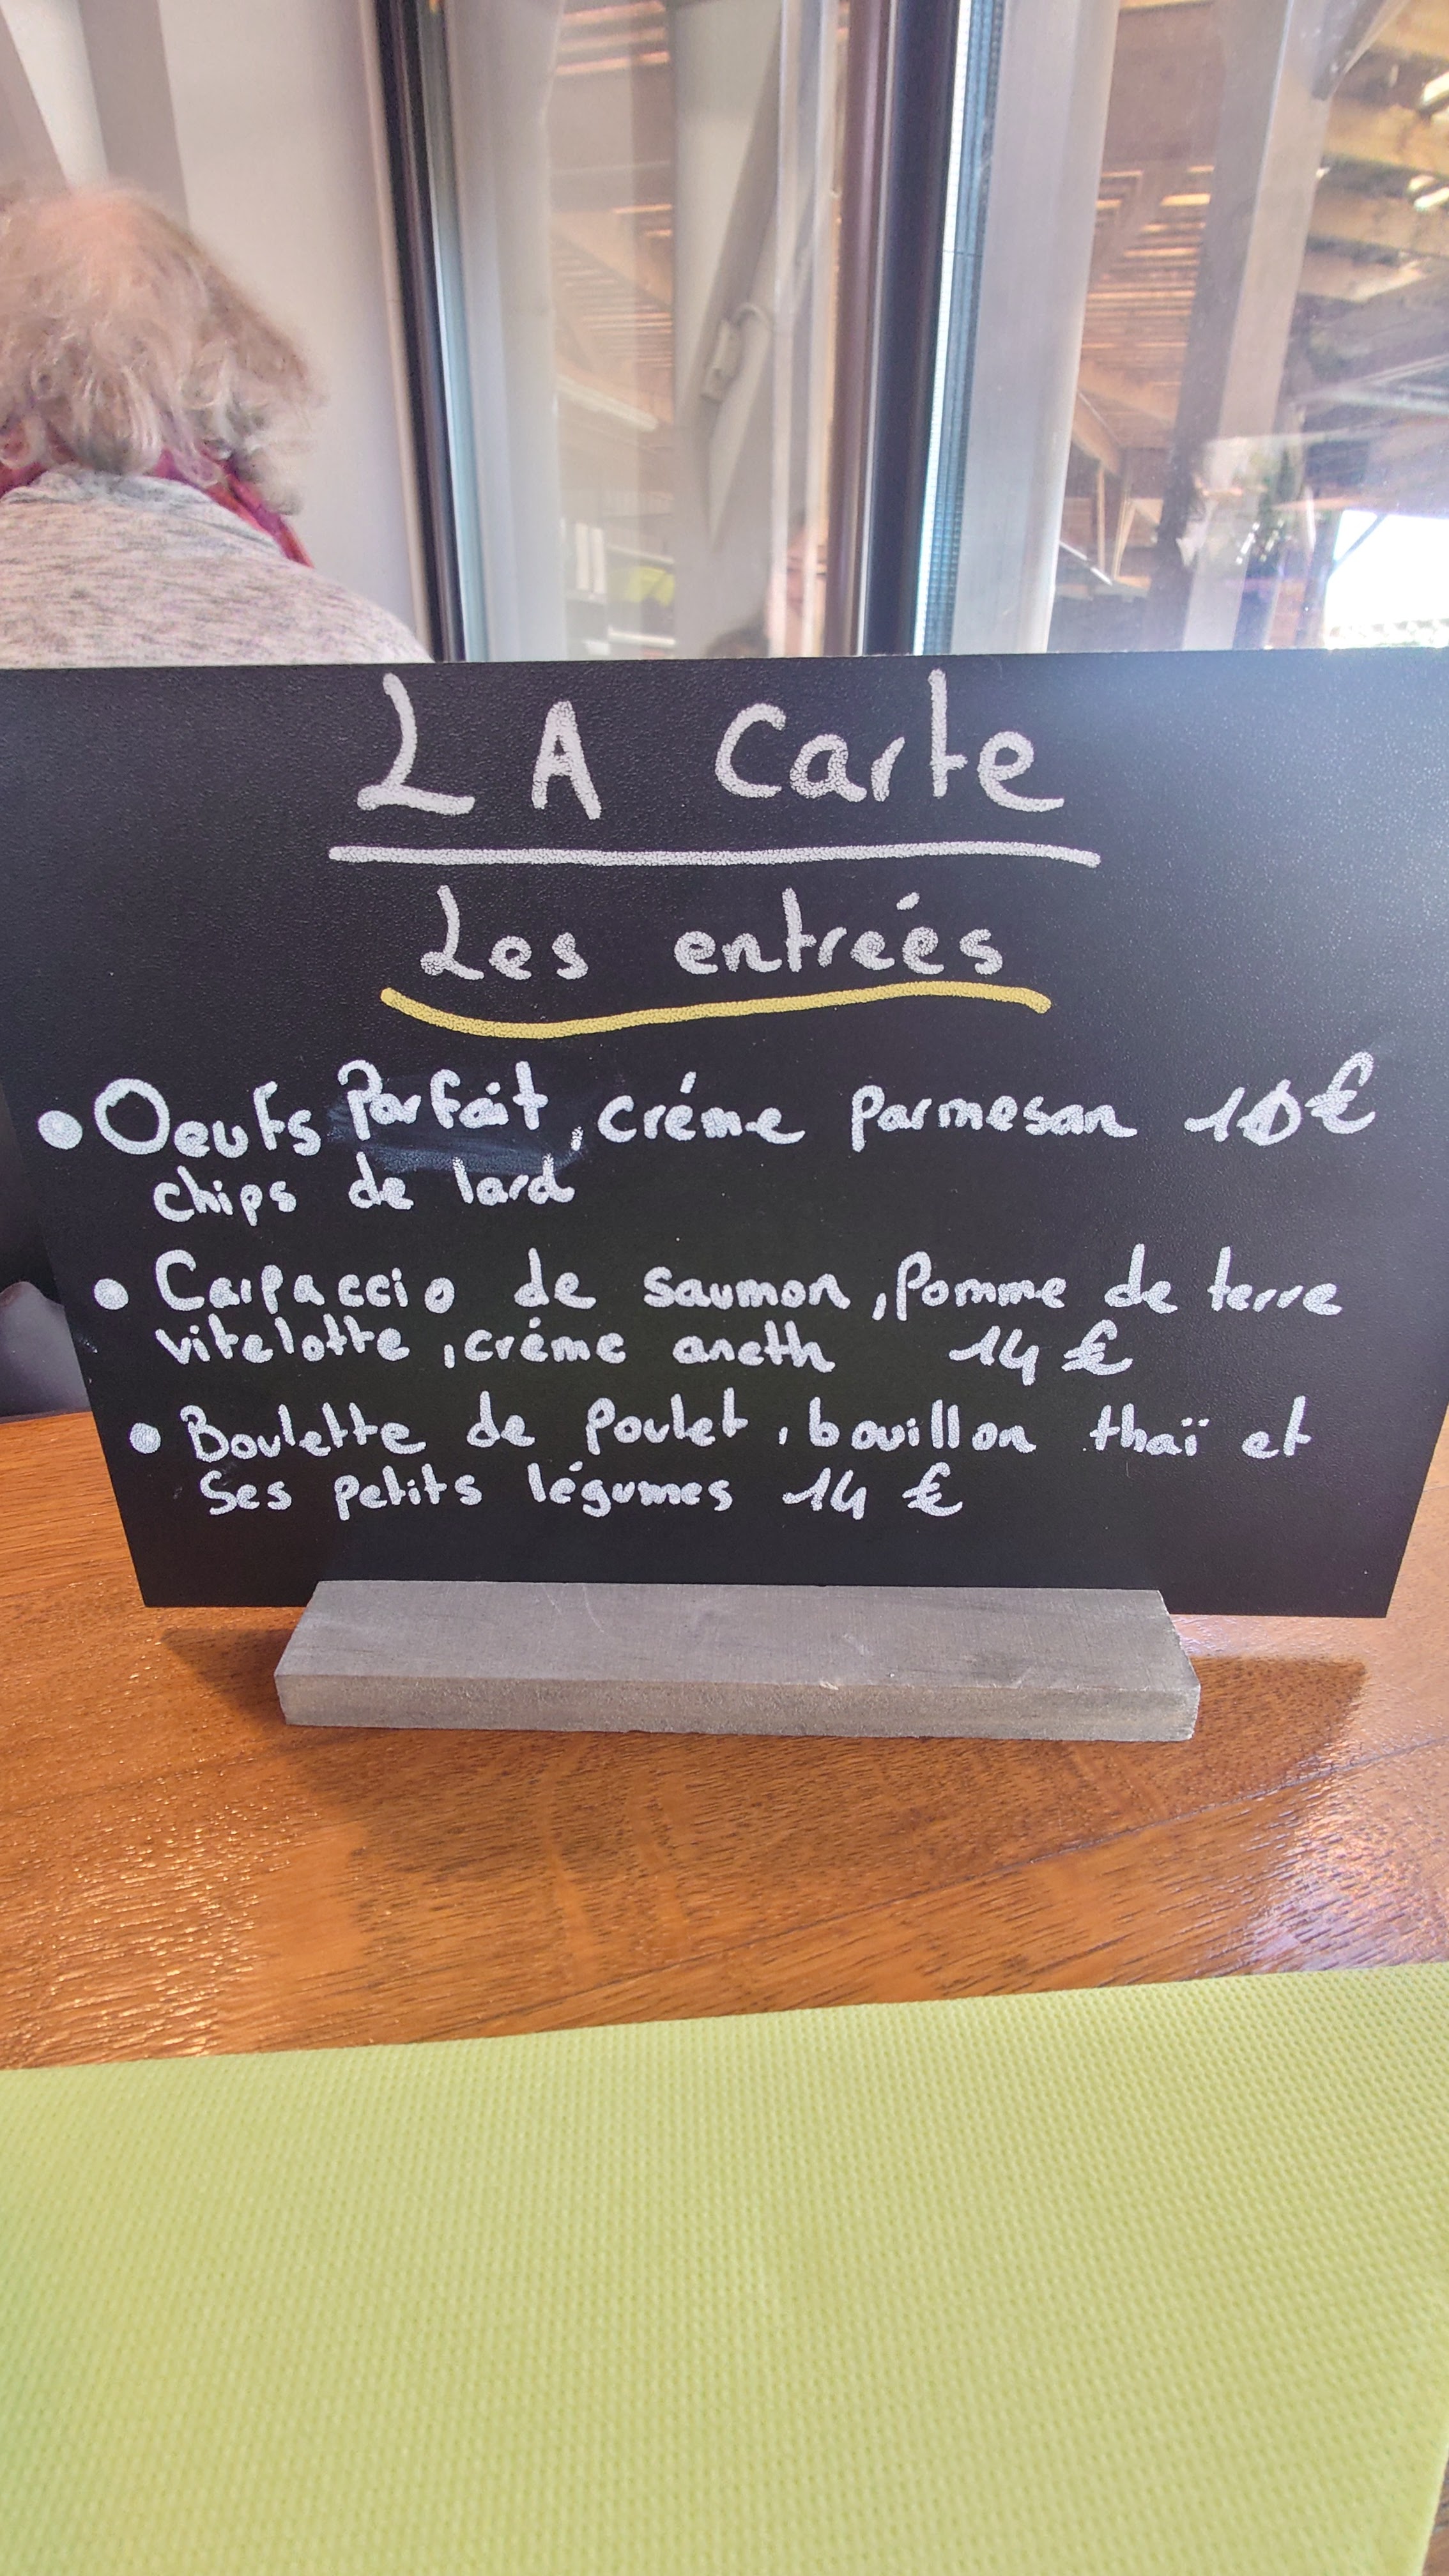 LA Carte
Les entreés
• Oeufs Parfait, créme parmesan 10€
chips de lard
• Carpaccio de saumon, Pomme de terre
vitelotte, créme aneth 14 €
• Boulette de poulet, bouillon thaï et
Ses petits légumes 14 €